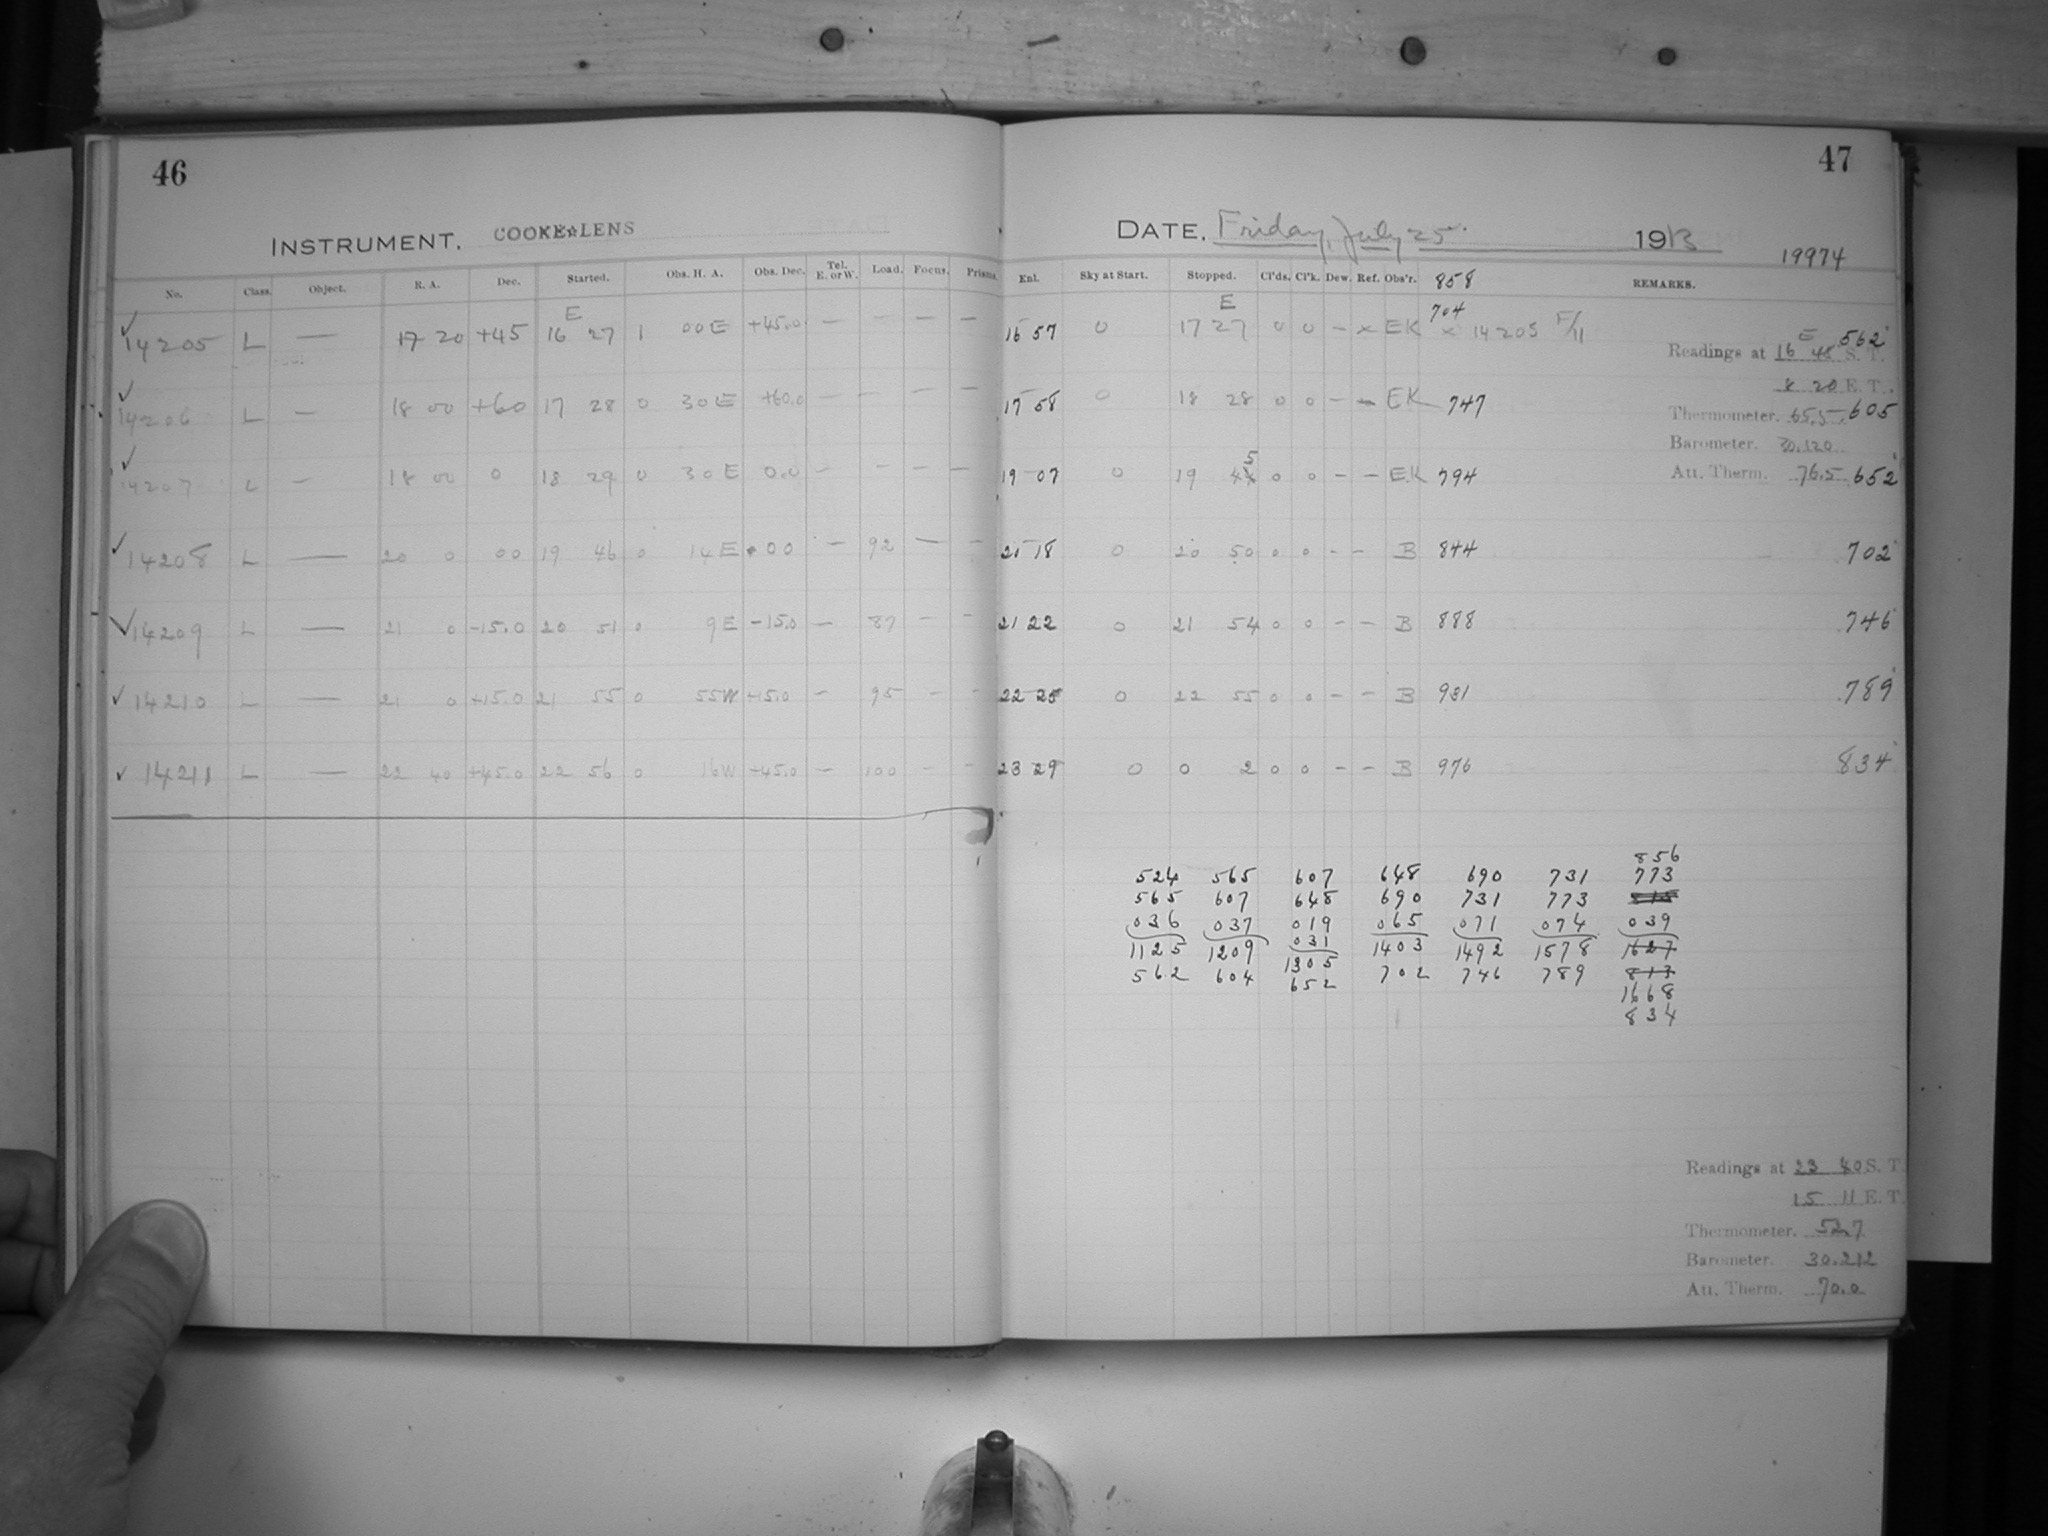 46
INSTRUMENT. COOKE☆LENS
No. Class. Object. R. A. Dec. Started. Obs. H. A. Obs. Dec. Tel. E. or W. Load. Focus. Prisms.
✓ 14205 L — 17 20 +45 E 16 27 1 00 E +45.0 — — — —
✓ 14206 L — 18 00 +60 17 28 0 30 E +60.0 — — — —
✓ 14207 L — 18 00 0 18 29 0 30 E 0.0 — — — —
✓ 14208 L — 20 0 00 19 46 0 14 E 00 — 92 — —
✓ 14209 L — 21 0 -15.0 20 51 0 9 E -15.0 — 87 — —
✓ 14210 L — 21 0 +15.0 21 55 0 55 W +15.0 — 95 — —
✓ 14211 L — 22 40 +45.0 22 56 0 16 W +45.0 — 100 — —
47
DATE. Friday, July 25. 1913
19974
Enl. Sky at Start. Stopped. Cl'ds. Cl'k. Dew. Ref. Obs'r. 858 REMARKS.
16 57 0 E 17 27 0 0 — x EK 704 x 14205 F/11 562
Readings at 16 E 48 S. T.
8 20 E. T.
17 58 0 18 28 0 0 — — EK 747 605
Thermometer. 65.5
Barometer. 30.120
19 07 0 19 45 0 0 — — EK 794 652
Att. Therm. 76.5
20 18 0 20 50 0 0 — — B 844 702
21 22 0 21 54 0 0 — — B 888 746
22 25 0 22 55 0 0 — — B 931 789
23 29 0 0 2 0 0 — — B 976 834
856
524 565 607 648 690 731 773
565 607 648 690 731 773 815
036 037 019 065 071 074 039
031
1125 1209 1305 1403 1492 1578 1627
562 604 652 702 746 789 813
1668
834
Readings at 23 40 S. T.
15 11 E. T.
Thermometer. 52.7
Barometer. 30.212
Att. Therm. 70.0